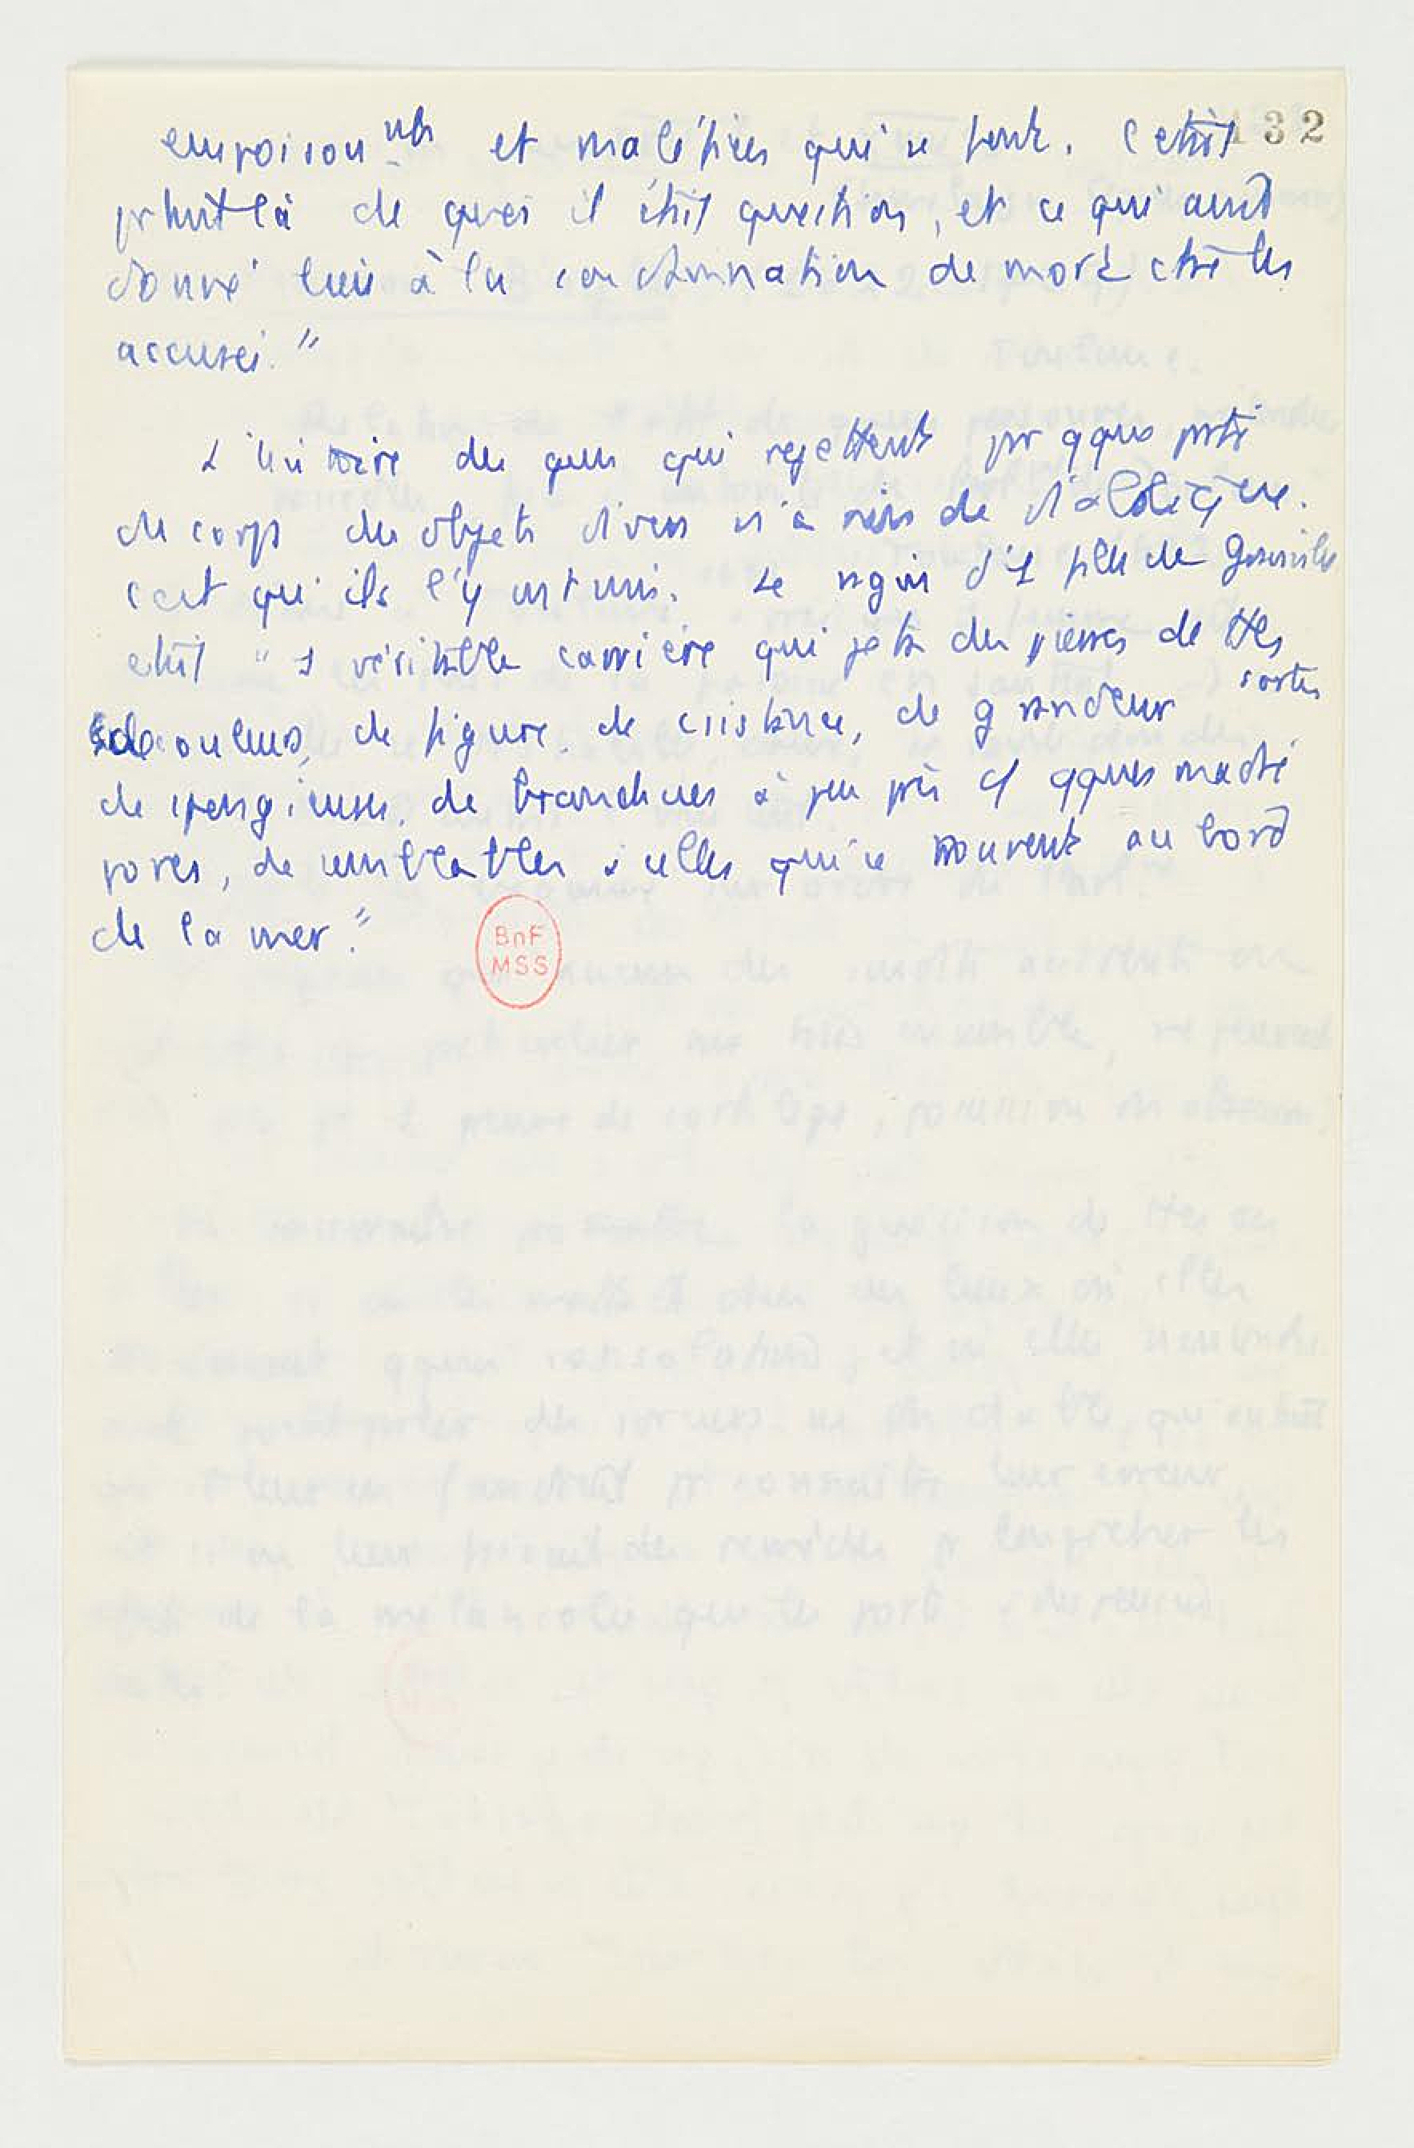 132
empoisonnmts et maléfices qui se font. C'était
plutôt là de quoi il était question, et ce qui aurait
donné lieu à la condamnation de mort ctre les
accusés."
L'histoire des gens qui rejettent par qques partie
du corps des objets divers n'a rien de diabolique.
c'est qu'ils l'y ont mis. Le vagin d'1 fille de
était "1 véritable carrière qui jeta des pierres de ttes
sortes
de couleurs, de figure, de consistance, de grandeur
de spongieuses, de branchues à peu près c/ qques madré
pores, de semblables à celles qui se trouvent au bord
de la mer."
BnF
MSS